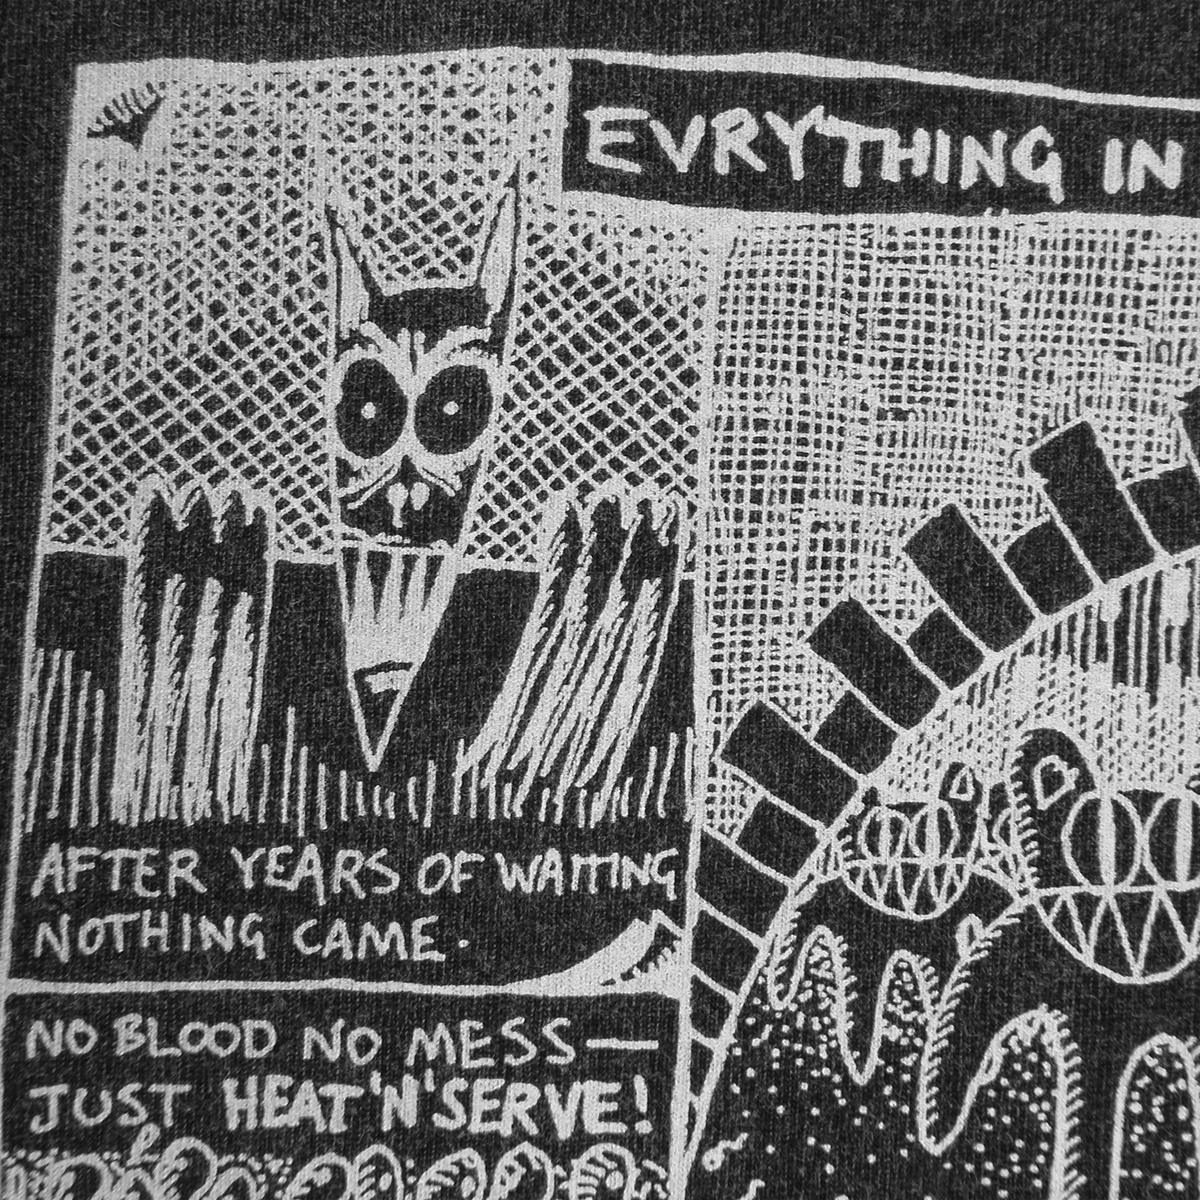 EVRYTHING IN
AFTER YEARS OF WAITING
NOTHING CAME.
NO BLOOD NO MESS—
JUST HEAT'N'SERVE!